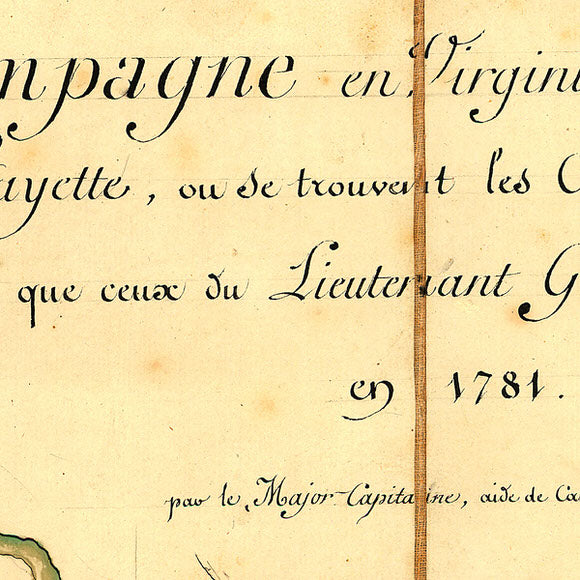 mpagne en Virgini
ayette, ou se trouvent les C
que ceux du Lieutenant G
en 1781.
par le Major-Capitaine, aide de Ca